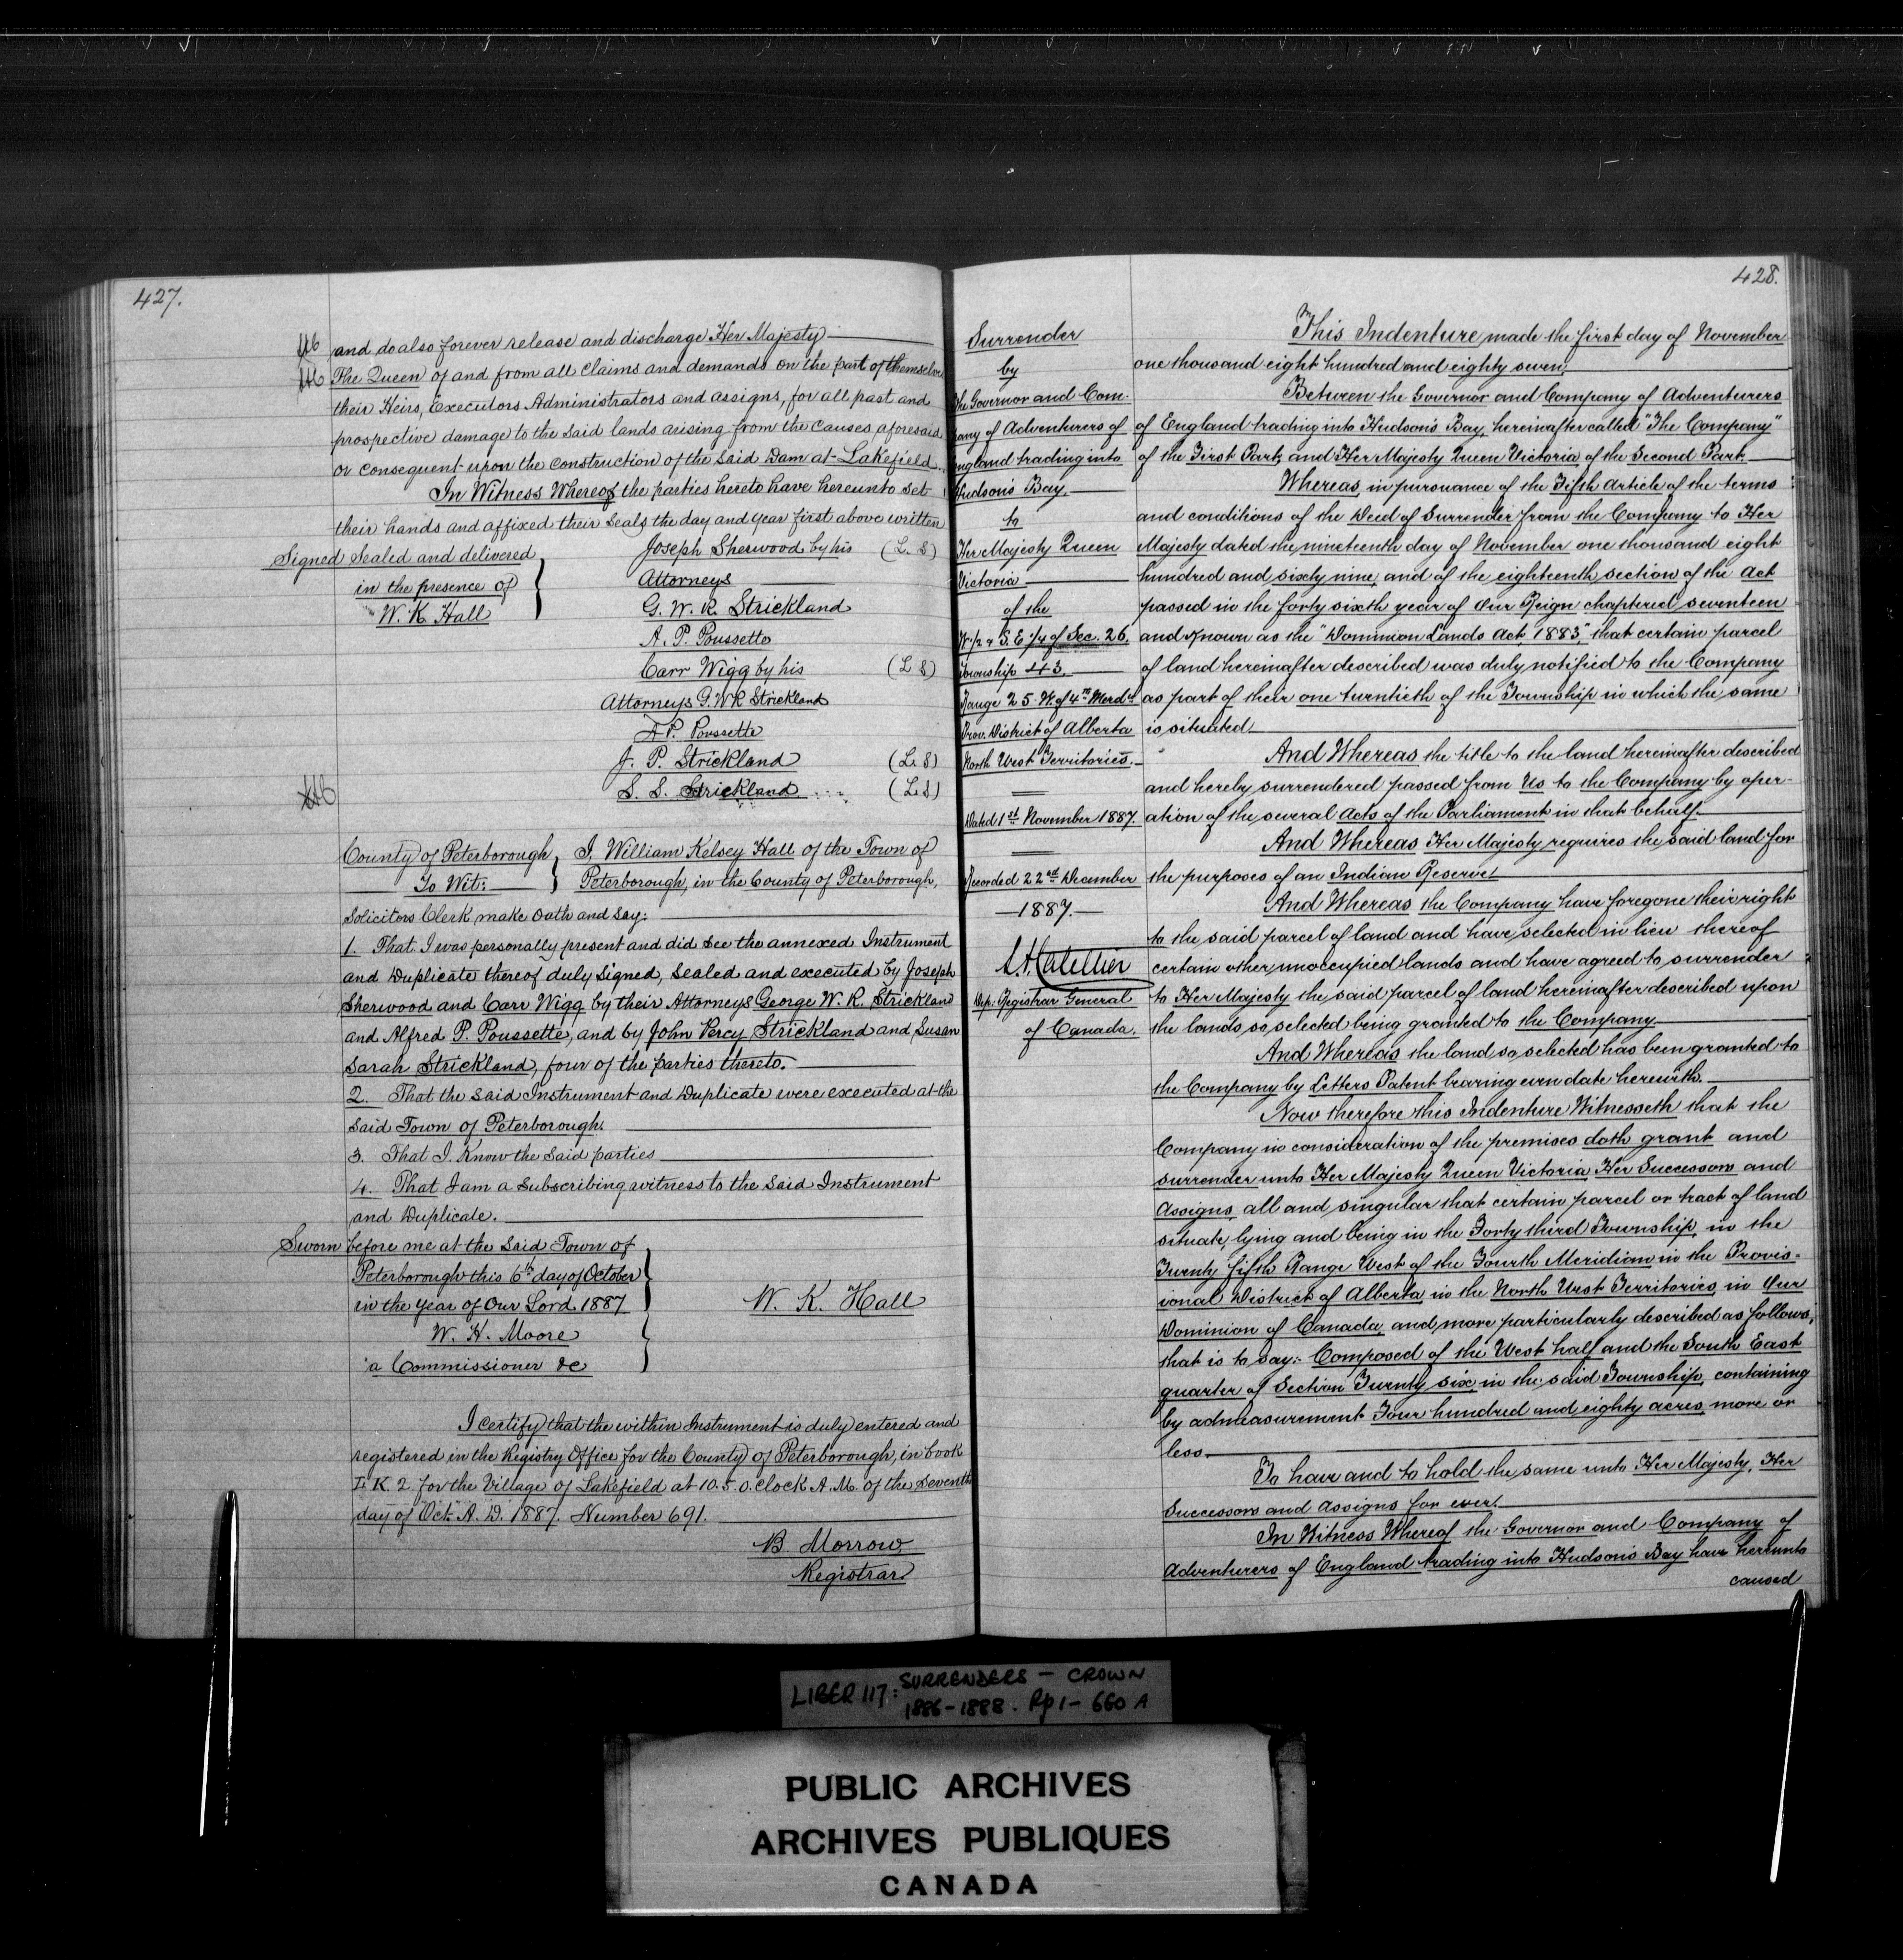 427.
and do also forever release and discharge Her Majesty
The Queen of and from all claims and demands on the part of themselves
their Heirs, Executors Administrators and assigns, for all past and
prospective damage to the said lands arising from the causes aforesaid
or consequent upon the construction of the said Dam at Lakefield.
In Witness Whereof the parties hereto have hereunto set
their hands and affixed their Seals the day and year first above written
Signed Sealed and delivered
in the presence of
W. K. Hall
Joseph Sherwood by his (L. S)
Attorneys
G. W. R. Strickland
A. P. Poussette
Carr Wigg by his (L S)
Attorneys G. W R Strickland
A P. Poussette
J. P. Strickland (L. S)
S. S. Strickland (L. S)
County of Peterborough
To Wit:
I, William Kelsey Hall of the Town of
Peterborough, in the County of Peterborough,
Solicitors Clerk make oath and say:
1. That I was personally present and did see the annexed Instrument
and Duplicate thereof duly signed, sealed and executed by Joseph
Sherwood and Carr Wigg by their Attorneys George W. R. Strickland
and Alfred P. Poussette, and by John Percy Strickland and Susan
Sarah Strickland, four of the parties thereto.
2. That the said Instrument and Duplicate were executed at the
said Town of Peterborough.
3. That I Know the said parties
4. That I am a subscribing witness to the said Instrument
and Duplicate.
Sworn before me at the said Town of
Peterborough this 6th day of October
in the year of Our Lord 1887
W. H. Moore
a Commissioner &c
W. K. Hall
I certify that the within Instrument is duly entered and
registered in the Registry Office for the County of Peterborough, in book
L K. 2. for the Village of Lakefield at 10.5. o.clock A. M. of the Seventh
day of Oct. A. D. 1887. Number 691.
B. Morrow
Registrar
428.
Surrender
by
The Governor and Com-
pany of Adventurers of
England trading into
Hudson's Bay.
to
Her Majesty Queen
Victoria
of the
W 1/2 & S. E 1/4 of Sec. 26,
Township 43,
Range 25 W. of 4th Merdn
Prov. District of Alberta
North West Territories.
Dated 1st November 1887.
Recorded 22nd December
1887.
Dep. Registrar General
of Canada.
This Indenture made the first day of November
one thousand eight hundred and eighty seven,
Between the Governor and Company of Adventurers
of England trading into Hudson's Bay, hereinafter called "The Company"
of the First Part, and Her Majesty Queen Victoria, of the Second Part
Whereas, in pursuance of the Fifth Article of the terms
and conditions of the Deed of Surrender from the Company to Her
Majesty dated the nineteenth day of November one thousand eight
hundred and sixty nine, and of the eighteenth section of the Act
passed in the forty sixth year of Our Reign chaptered seventeen
and Known as the "Dominion Lands Act 1883," that certain parcel
of land hereinafter described was duly notified to the Company
as part of their one twentieth of the Township in which the same
is situated.
And Whereas the title to the land hereinafter described
and hereby surrendered passed from Us to the Company by oper-
ation of the several Acts of the Parliament in that behalf.
And Whereas Her Majesty requires the said land for
the purposes of an Indian Reserve
And Whereas the Company have foregone their right
to the said parcel of land and have selected in lieu thereof
certain other unoccupied lands and have agreed to surrender
to Her Majesty the said parcel of land hereinafter described upon
the lands so selected being granted to the Company.
And Whereas the land so selected has been granted to
the Company by Letters Patent bearing even date herewith.
Now therefore this Indenture Witnesseth that the
Company in consideration of the premises doth grant and
surrender unto Her Majesty Queen Victoria, Her Successors and
Assigns, all and singular that certain parcel or tract of land
situate, lying and being in the Forty third Township, in the
Twenty fifth Range West of the Fourth Meridian in the Provis-
ional District of Alberta, in the North West Territories, in Our
Dominion of Canada, and more particularly described as follows,
that is to say:- Composed of the West half and the South East
quarter of Section Twenty six in the said Township, containing
by admeasurement Four hundred and eighty acres, more or
less.
To have and to hold the same unto Her Majesty, Her
Successors and Assigns for ever.
In Witness Whereof the Governor and Company of
Adventurers of England trading into Hudson's Bay have hereunto
caused
LIBER 117: SURRENDERS – CROWN
1886-1888. Pp 1 - 660 A
PUBLIC ARCHIVES
ARCHIVES PUBLIQUES
CANADA